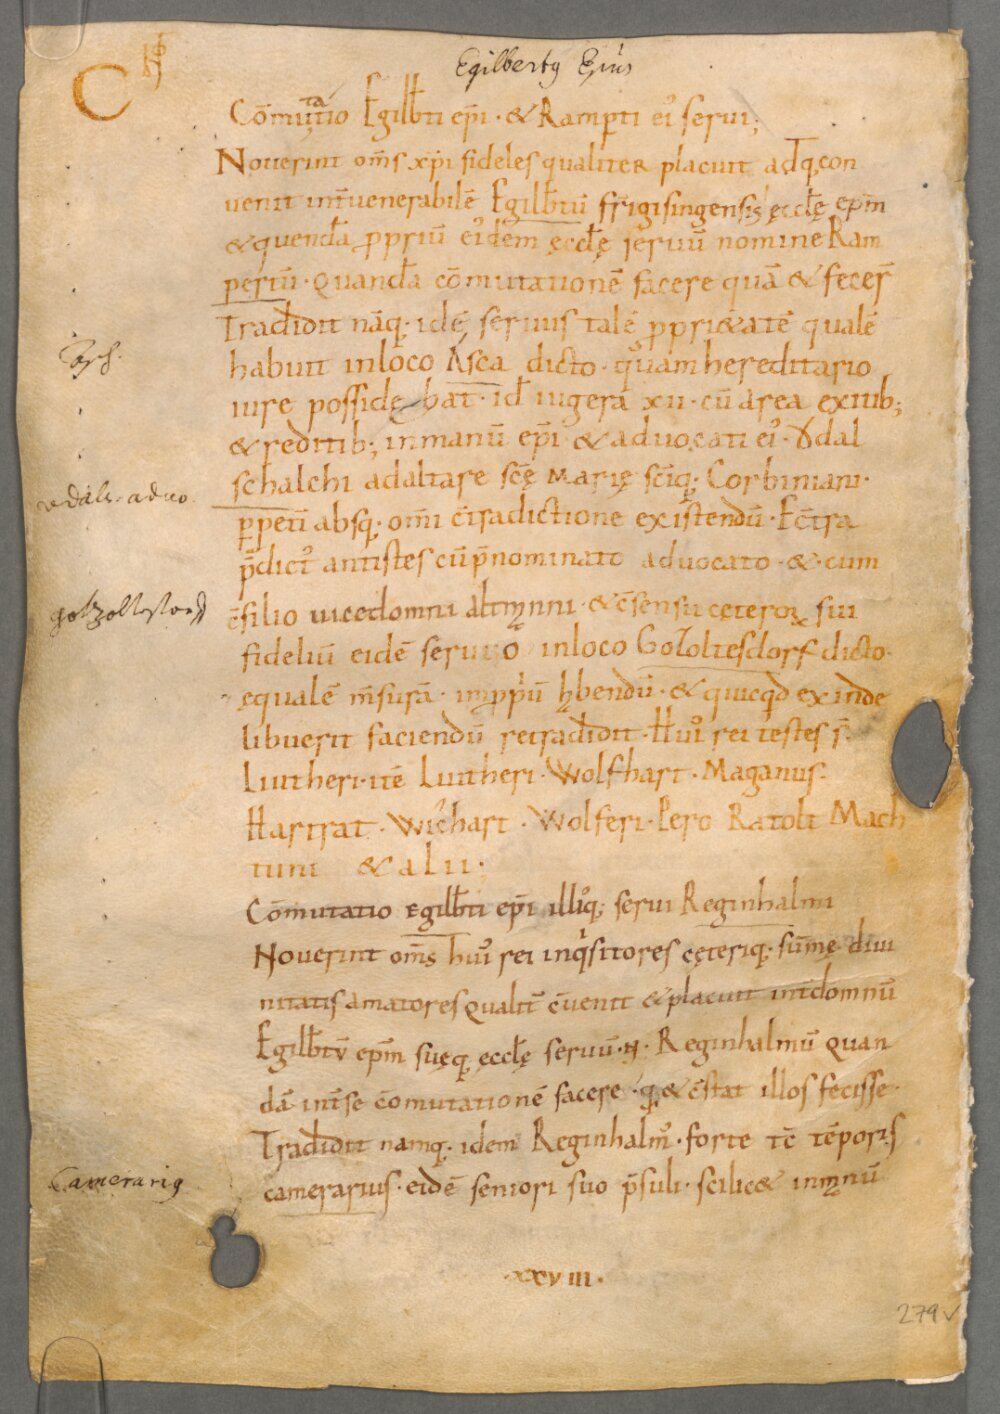 Egilbertꝯ Ep̄us
C
Cōmutatio Egilb̄ti ep̄i · & Ramp̄ti eiꝰ serui;
Nouerint om̄s xp̄i fideles qualiter placuit adq; con
uenit int̄ uenerabilē Egilb̄tū frigisingensis ęccl̄ę ep̄m
& quendā p̄priū eiꝰdem ęccl̄ę seruū nomine Ram
pertū · quandā cōmutationē facere quā & fecer̄
Tradidit nāq; idē seruus talē p̄prietatē qualē
habuit in loco Asca dicto · quam hereditario
iure possidebat · id iugera xii · cū area exitib;
& reditib; in manū ep̄i · & aduocati eiꝰ · Ơdal
schalchi ad altare scę̄ marię sc̄iq; Corbiniani ·
p̄petī absq; om̄i c̄tradictione existendū · Ec̄tra
p̄dictꝰ antistes cū p̄nominato aduocato · & cum
c̄silio uicedomni altmanni · & c̄sensu cęteroꝝ sui
fideliū eidē seruuo in loco Gozoltesdorf dicto ·
ęqualē m̄surā · in p̄priū hbendū · & quicq̇d ex inde
libuerit faciendū retradidit · Huiꝰ rei testes s̄ ·
Liutheri · itē Liutheri · Wolfhart · Maganus ·
Hartrat · Wichart · Wolferi · Pero Ratolt Mach
tuni & alii ·
Cōmutatio Egilb̄ti ep̄i illiꝰq; serui Reginhalmi
Nouerint om̄s huiꝰ rei inq̇sitores cęteriq; sūmę diui
nitatis amatores qualit̄ c̄uenit & placuit int̄ domnū
Egilb̄tū ep̄m suęq; ęccl̄ę seruū · N · Reginhalmū quan
dā int̄ se cōmutationē facere · q; & c̄stat illos fecisse ·
Tradidit namq; idem Reginhalmꝰ · forte tc̄ tēporis
camerarius · eidē seniori suo p̄suli · scilic& in manū
Asch.
vdals. aduo.
gotzoltestorf
Camerariꝯ
· xxviii ·
279v